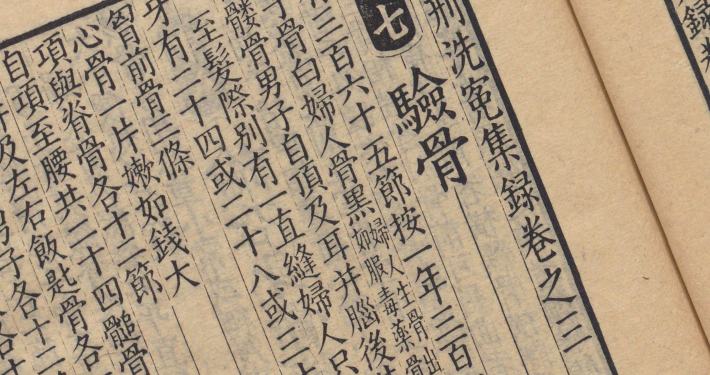 刑洗寃集録卷之三
七
驗骨
三百六十五節按一年三百
子骨白婦人骨黑
婦人生骨出
如服毒藥骨
髏骨男子自頂及耳并腦後
至髮際别有一直縫婦人只
牙有二十四或二十八或三十
胷前骨三條
心骨一片嫩如錢大
項與脊骨各十二節
自項至腰共二十四髓骨
及左右飯匙骨各
男子各十二